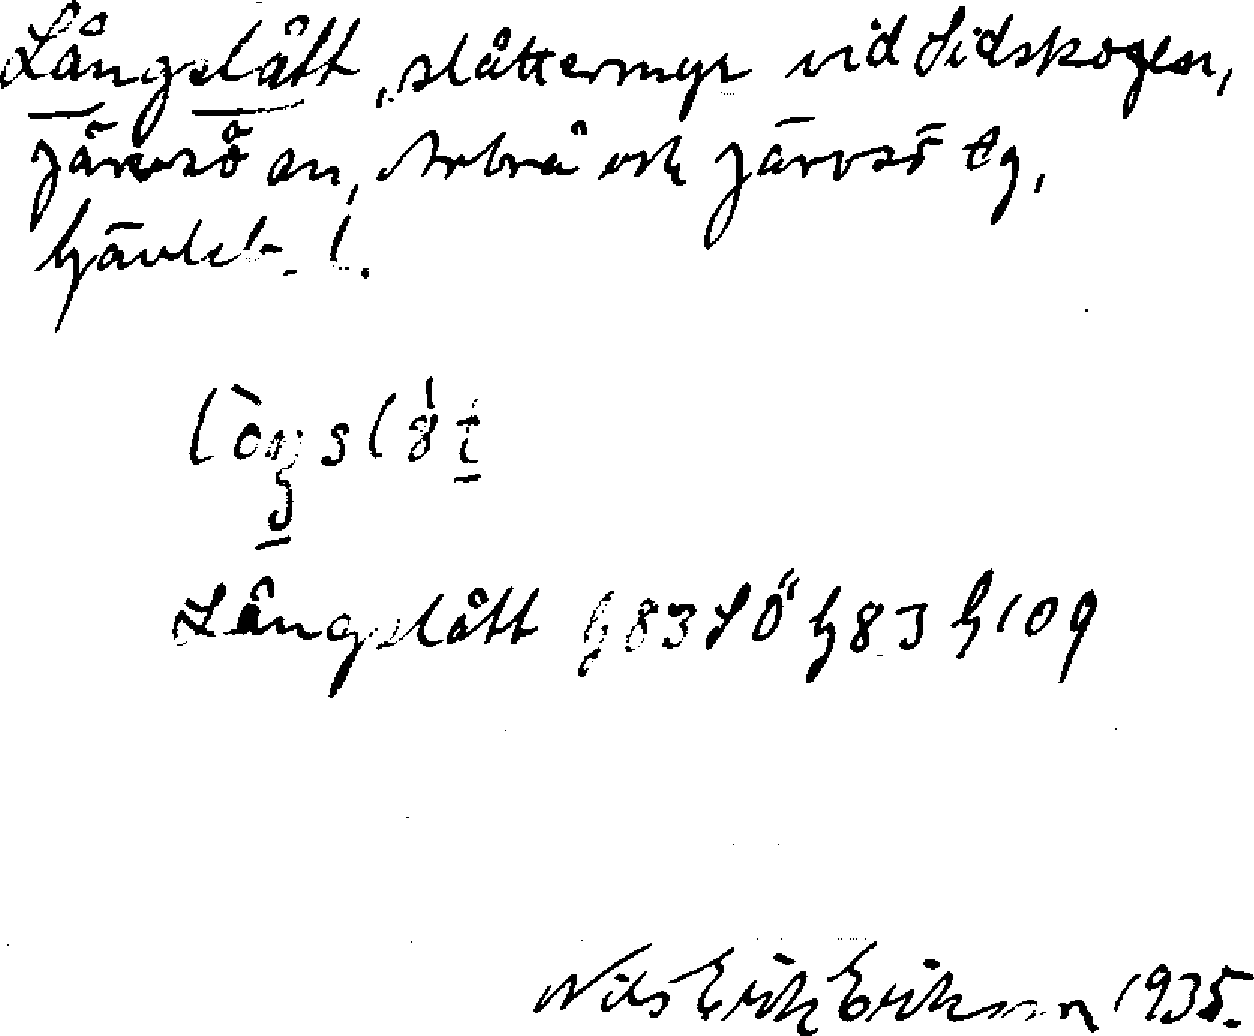 Långslått, slåttermyr vid Sidskogen,
Järvsö sn, Arbrå och Järvsö tg,
Gävleb. l.
Långslått G 83 SÖ G 83 G 109
Nils Erik Eriksson 1935.